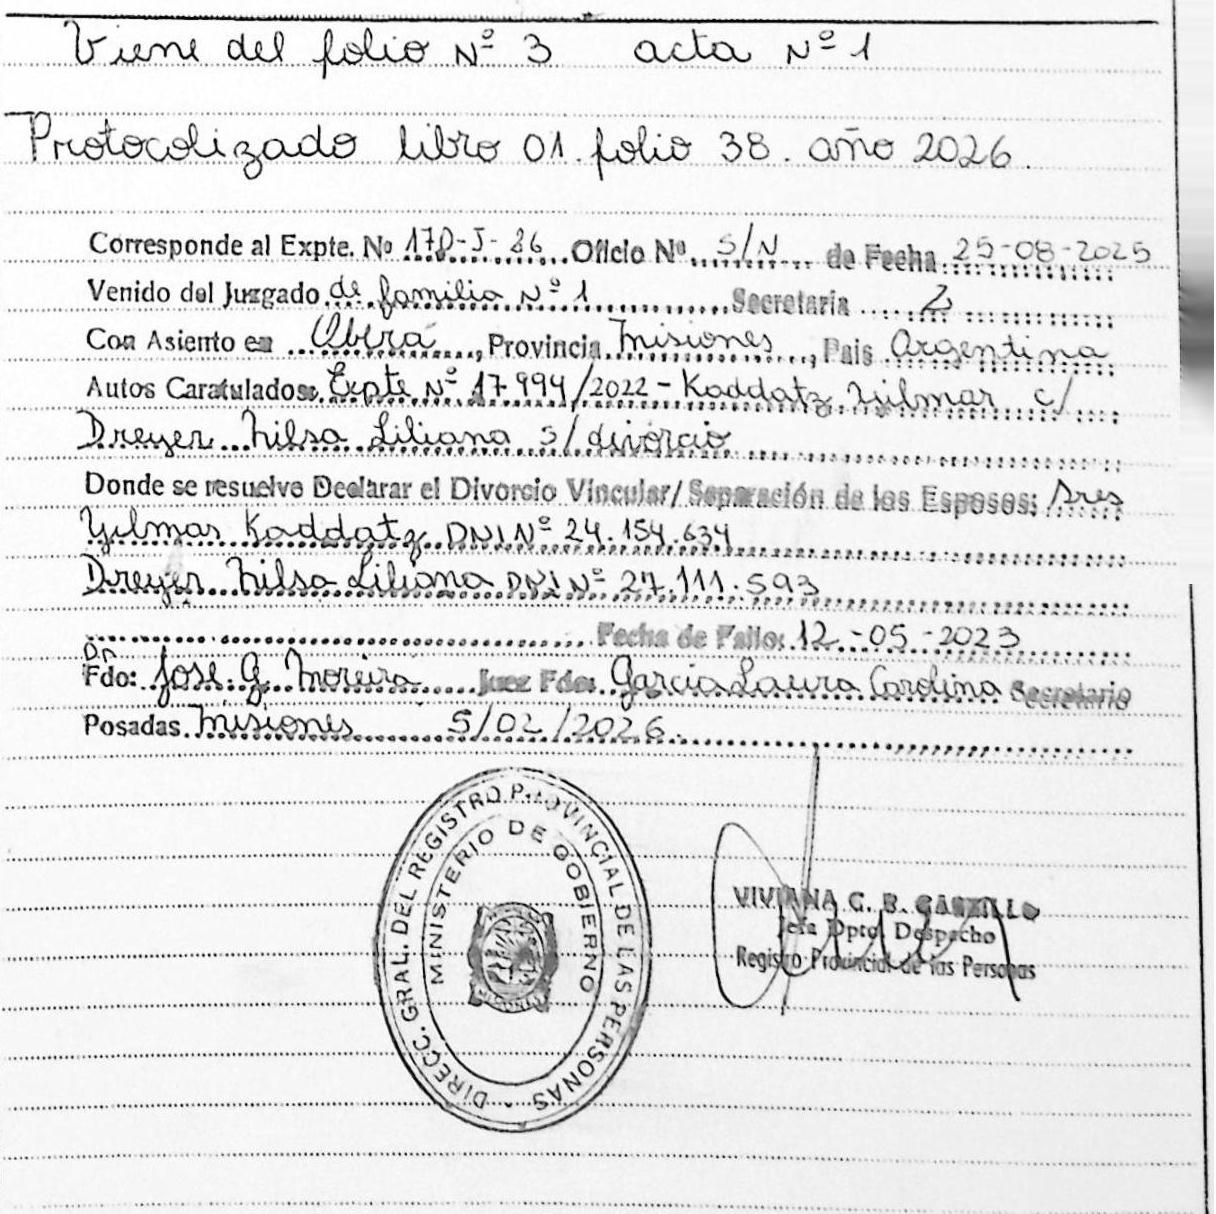 Viene del folio Nº 3 acta Nº 1
Protocolizado libro 01. folio 38. año 2026.
Corresponde al Expte. No 170-J-26 Oficio Nº S/N de Fecha 25-08-2025
Venido del Juzgado de familia Nº 1 Secretaria 2
Con Asiento en Oberá, Provincia Misiones, Pais Argentina
Autos Caratulados: Expte Nº 17994/2022 - Kaddatz Yilmar c/
Dreyer Nilsa Liliana s/ divorcio
Donde se resuelve Declarar el Divorcio Vincular/ Separación de los Esposos: Sres
Yilmar Kaddatz DNI Nº 24.154.634
Dreyer Nilsa Liliana DNI Nº 27.111.593
Fecha de Fallo: 12-05-2023
Fdo: Dr José G. Moreira Juez Fdo: Garcia Laura Carolina Secretario
Posadas Misiones 5/02/2026.
DIRECC. GRAL. DEL REGISTRO PROVINCIAL DE LAS PERSONAS
MINISTERIO DE GOBIERNO
MISIONES
VIVIANA G. B. CASTILLO
Jefa Dpto. Despacho
Registro Provincial de las Personas